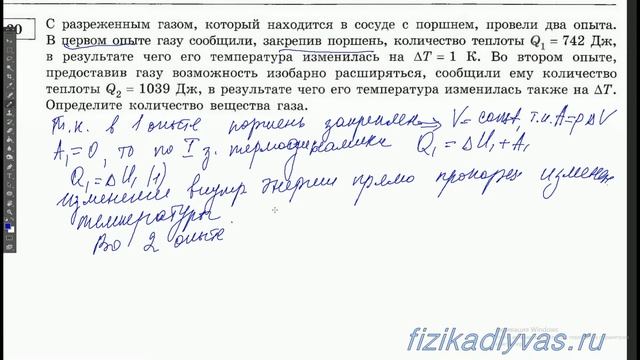 30
С разреженным газом, который находится в сосуде с поршнем, провели два опыта.
В первом опыте газу сообщили, закрепив поршень, количество теплоты Q₁ = 742 Дж,
в результате чего его температура изменилась на ΔT = 1 К. Во втором опыте,
предоставив газу возможность изобарно расширяться, сообщили ему количество
теплоты Q₂ = 1039 Дж, в результате чего его температура изменилась также на ΔT.
Определите количество вещества газа.
Т.к. в 1 опыте поршень закреплен ⇒ V = const, т.к. A = pΔV
A₁ = 0, то по I з. термодинамики Q₁ = ΔU₁ + A₁
Q₁ = ΔU₁ (1)
изменение внутр энергии прямо пропорц изменен
температуры
Во 2 опыте
fizikadlyvas.ru